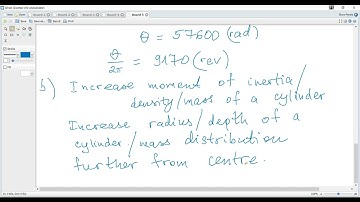 θ = 57600 (rad)
θ/2π = 9170 (rev)
b) Increase moment of inertia/
density/mass of a cylinder
Increase radius/depth of a
cylinder/mass distribution
further from centre.